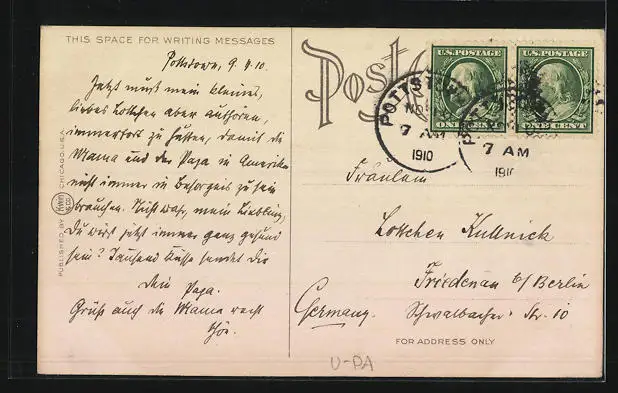 THIS SPACE FOR WRITING MESSAGES
Pottstown, 9. 10.
Jetzt mußt mein kleines,
liebes Lottchen aber aufhören,
immerfort zu husten, damit die
Mama und der Papa in Amerika
nicht immer in Besorgnis zu sein
brauchen. Nicht wahr, mein Liebling,
Du wirst jetzt immer ganz gesund
sein? Tausend Küsse sendet Dir
Dein Papa.
Grüß auch die Mama recht
schön.
PUBLISHED BY CHICAGO, U.S.A.
Post
U.S. POSTAGE
ONE CENT
U.S. POSTAGE
ONE CENT
7 AM
1910
7 AM
Fräulein
Lottchen Kullnick
Friedenau b/Berlin
Schwalbacher Str. 10
Germany.
FOR ADDRESS ONLY
U-PA